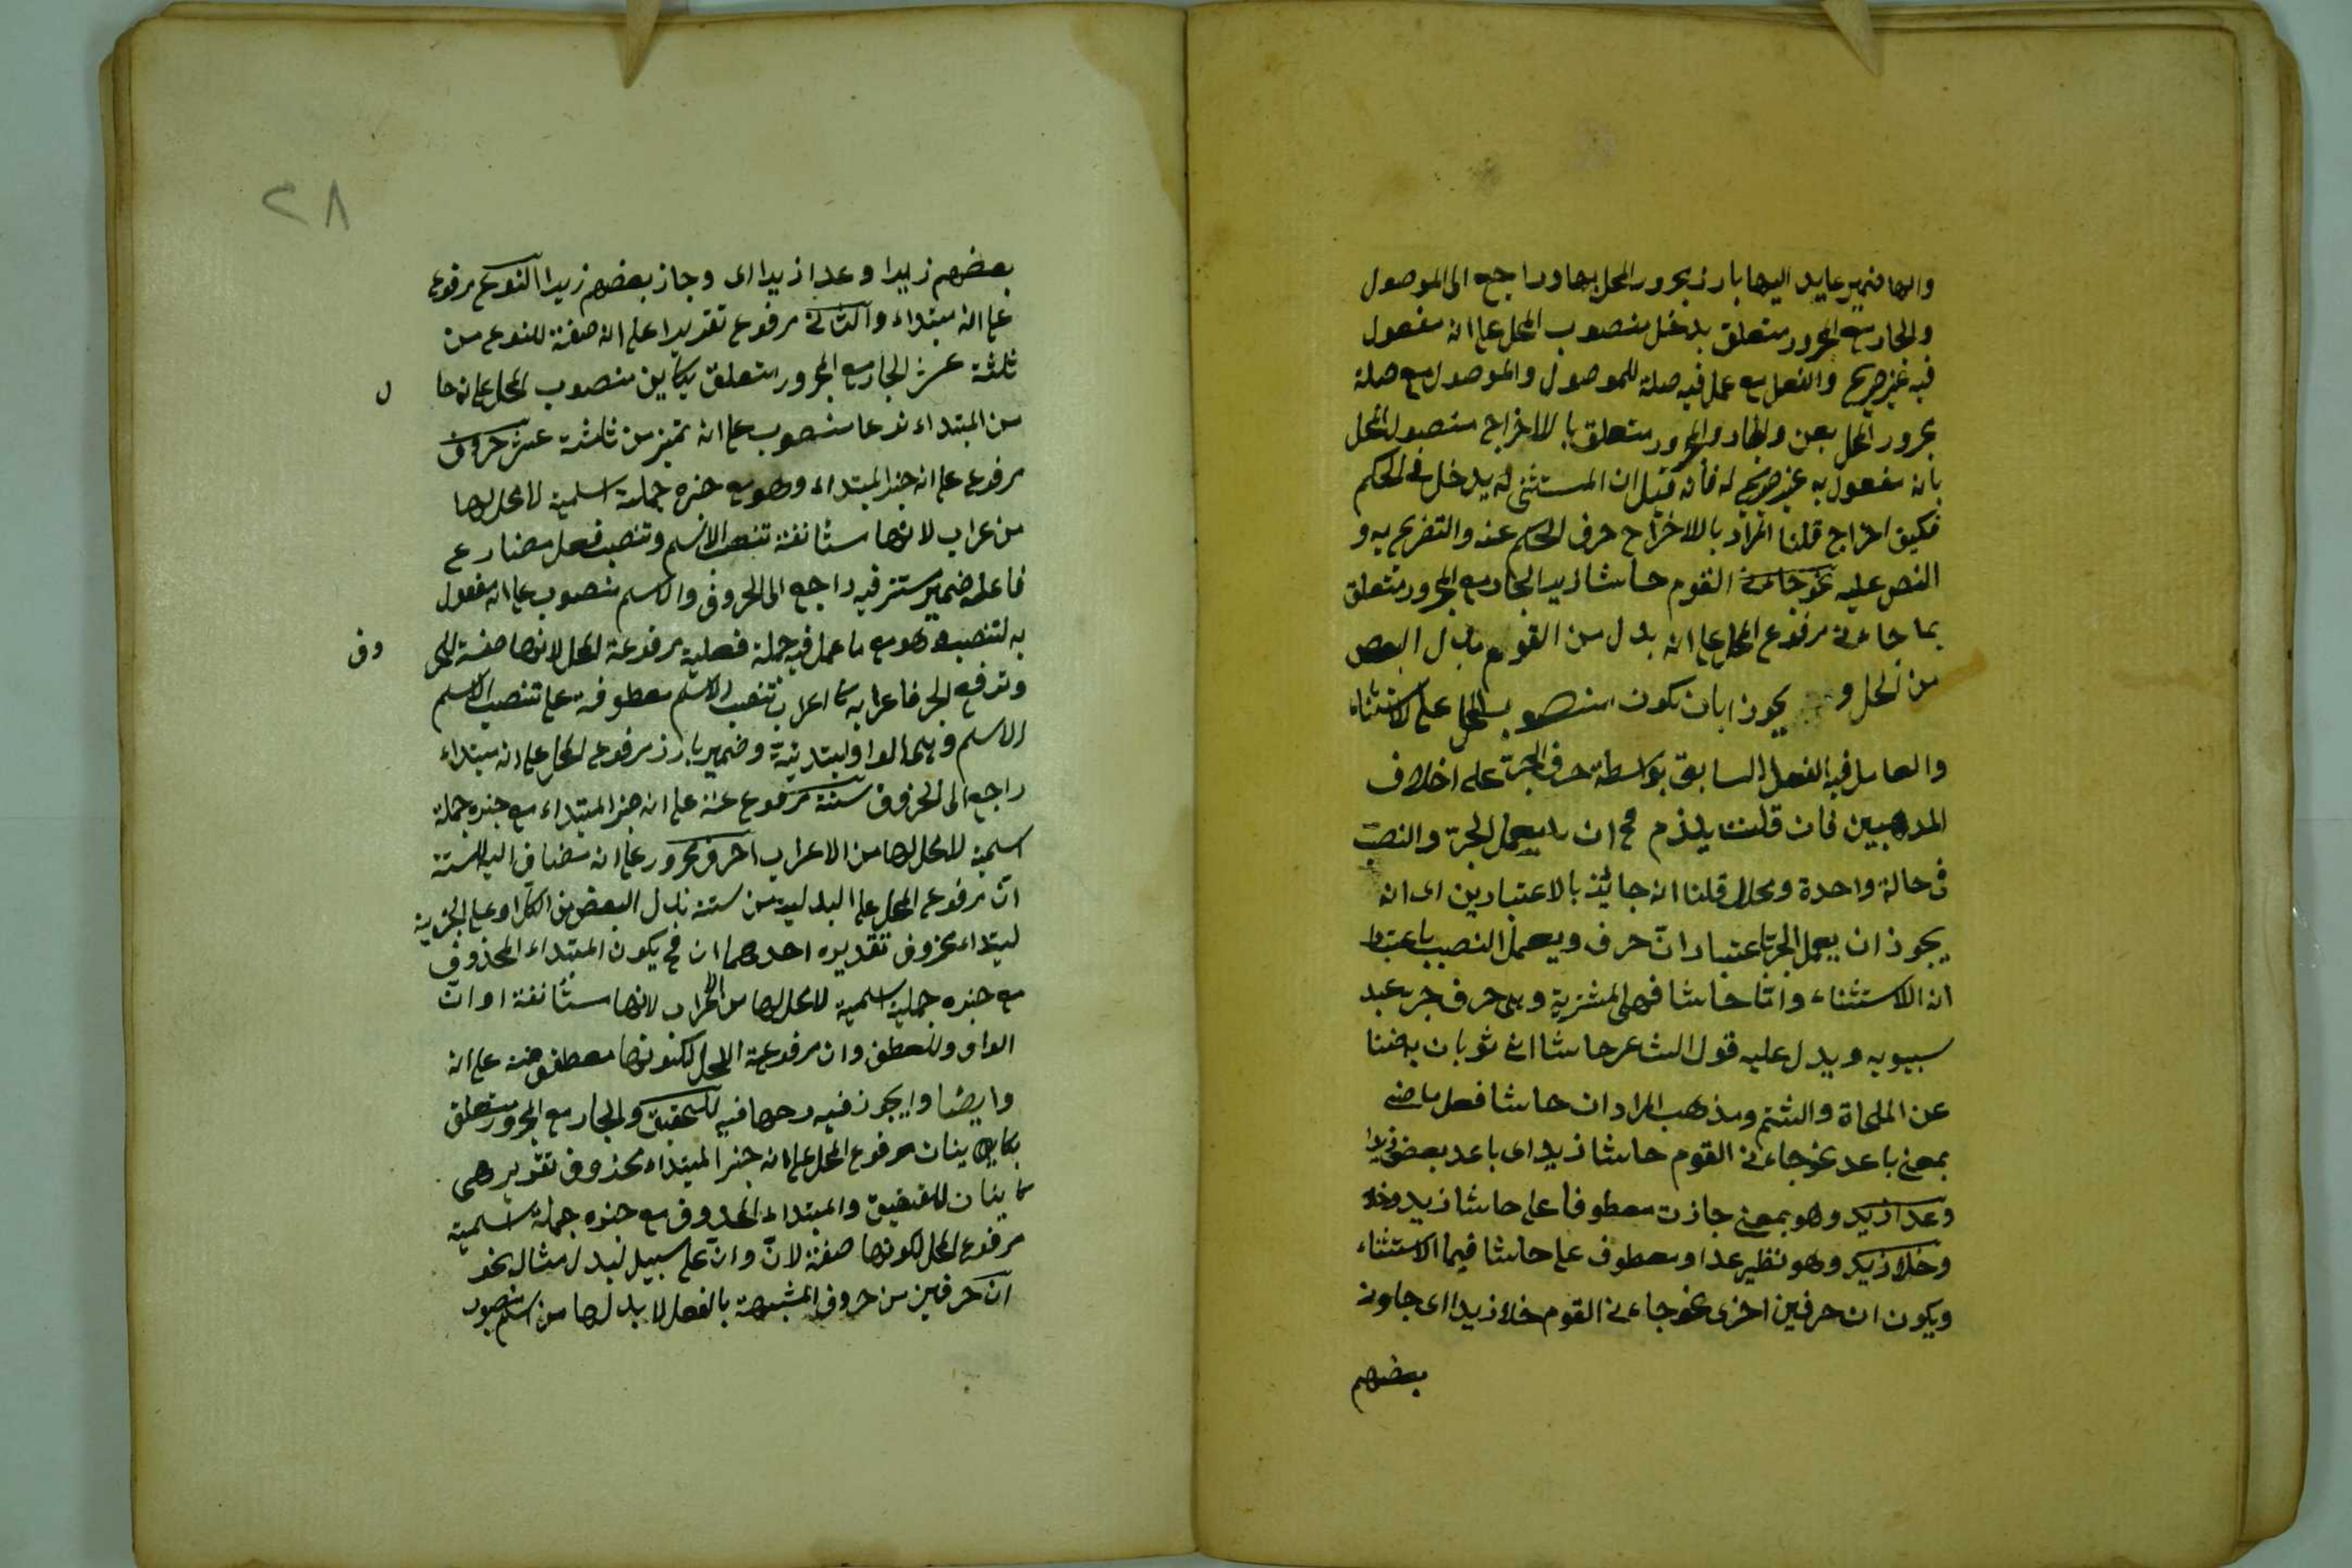 والها ضمير عايد اليها بارز مجرور المحل بها وراجع الى الموصول
والجار مع المجرور متعلق بدخل منصوب المحل على انه مفعول
فيه غير صريح والفعل مع عمل فيه صلة للموصول والموصول مع صلة
مجرور المحل بعن والجار والمجرور متعلق بالاخراج منصوب المحل
بانه مفعول به غير صريح له فانه قيل ان المستثنى لم يدخل في الحكم
فكيف اخراج قلنا المراد بالاخراج حرف الحكم عنه والتصريح به و
النص عليه نحو جاءني القوم حاشا زيد الجار مع المجرور متعلق
بما جاءني مرفوع المحل على انه بدل من القوم بدل البعض
من الكل و يجوز ابان يكون منصوب المحل على الاستثناء
والعامل فيه الفعل السابق بواسطة حرف الجر على اختلاف
المذهبين فان قلت يلزم ح ان يعمل الجر والنصب
في حالة واحدة ومحل قلنا انه جائز بالاعتبارين اى انه
يجوز ان يعمل الجر باعتبار ان حرف ويعمل النصب باعتبار
ان الاستثناء واما حاشا فهى المشتركة وهى حرف جر عبد
سيبويه ويدل عليه قول الشاعر حاشا ابى ثوبان به ضنا
عن الملحاة والشتم ومذهب المراد ان حاشا فعل ماضى
بمعنى باعد نحو جاءنى القوم حاشا زيدا اى باعد بعض زيدا
وعدا زيد وهو بمعنى جازت معطوفا على حاشا زيد وخلا
وخلا زيد وهو نظير عدا ومعطوف على حاشا فيما الاستثناء
ويكون ان حرفين اخرى نحو جاءنى القوم خلا زيدا اى جاونى
بعضهم
٢٨
بعضهم زيدا وعدا زيدا اى وجاز بعضهم زيدا النوع مرفوع
على انه مبتداء والثانى مرفوع تقديرا على انه صفة للنوع من
ثلثة عشر الجار مع المجرور متعلق بكاين منصوب المحل على انه حا
ل
من المبتداء نوعا منصوب على انه تميز من ثلثة عشر حروف
مرفوع على انه خبر المبتداء وهو مع خبره جملة اسمية لا محل لها
من عراب لانها مستانفة تنصب الاسم وتنصب فعل مضارع
فاعله ضمير مستتر فيه راجع الى الحروف والاسم منصوب على انه مفعول
به لتنصب وهو مع ما عمل فيه جملة فعلية مرفوعة المحل لانها صفة للحر
وف
وترفع الخبر فاعرابه كاعراب تنصب الاسم معطوفة على تنصب الاسم
الاسم وهما الواو ابتدئية وضمير بارز مرفوع المحل على انه مبتداء
راجع الى الحروف ستة مرفوع عنه على انه خبر المبتداء مع خبره جملة
اسمية لا محل لها من الاعراب احرف مجرور على انه مضاف اليه للستة
ان مرفوع المحل على البدلية من ستة بدل البعض من الكل او على الخبرية
لمبتداء محذوف تقديره احدهما ان ح يكون المبتداء المحذوف
مع خبره جملة اسمية لا محل لها من الاعراب لانها مستانفة او ان
الواو وللعطف وان مرفوعة المحل لكونها معطوفة على انه
وايضا وايجوز فيه وجها فيه للتحقيق والجار مع المجرور متعلق
بكاينان مرفوع المحل على انه خبر المبتداء محذوف تقديره هى
كاينان للتحقيق والمبتداء المحذوف مع خبره جملة اسمية
مرفوع المحل لكونها صفة لان وان على سبيل البدل مثال نحو
ان حرفين من حروف المشبهة بالفعل لا بد لها من اسم منصوب